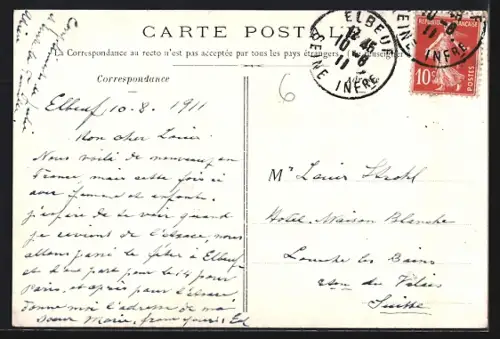 CARTE POSTALE
La Correspondance au recto n'est pas acceptée par tous les pays étrangers
Correspondance
Adresse
ELBEUF
12-45
10-8
11
SEINE INFRE
10c
6
Elbeuf 10.8.1911
Mon cher Xavier
Nous voilà de nouveau en
France mais cette fois ci
avec femme et enfants.
j'espère de te voir quand
je reviens de l'Alsace, nous
allons passer la fête à Elbeuf
et d'une part pour le 14 pour
Paris, et après pour l'Alsace
Donne moi l'adresse de ma
soeur Marie,
Mr Xavier Strohl
Hotel Maison Blanche
Louèche les Bains
du Valais
Suisse